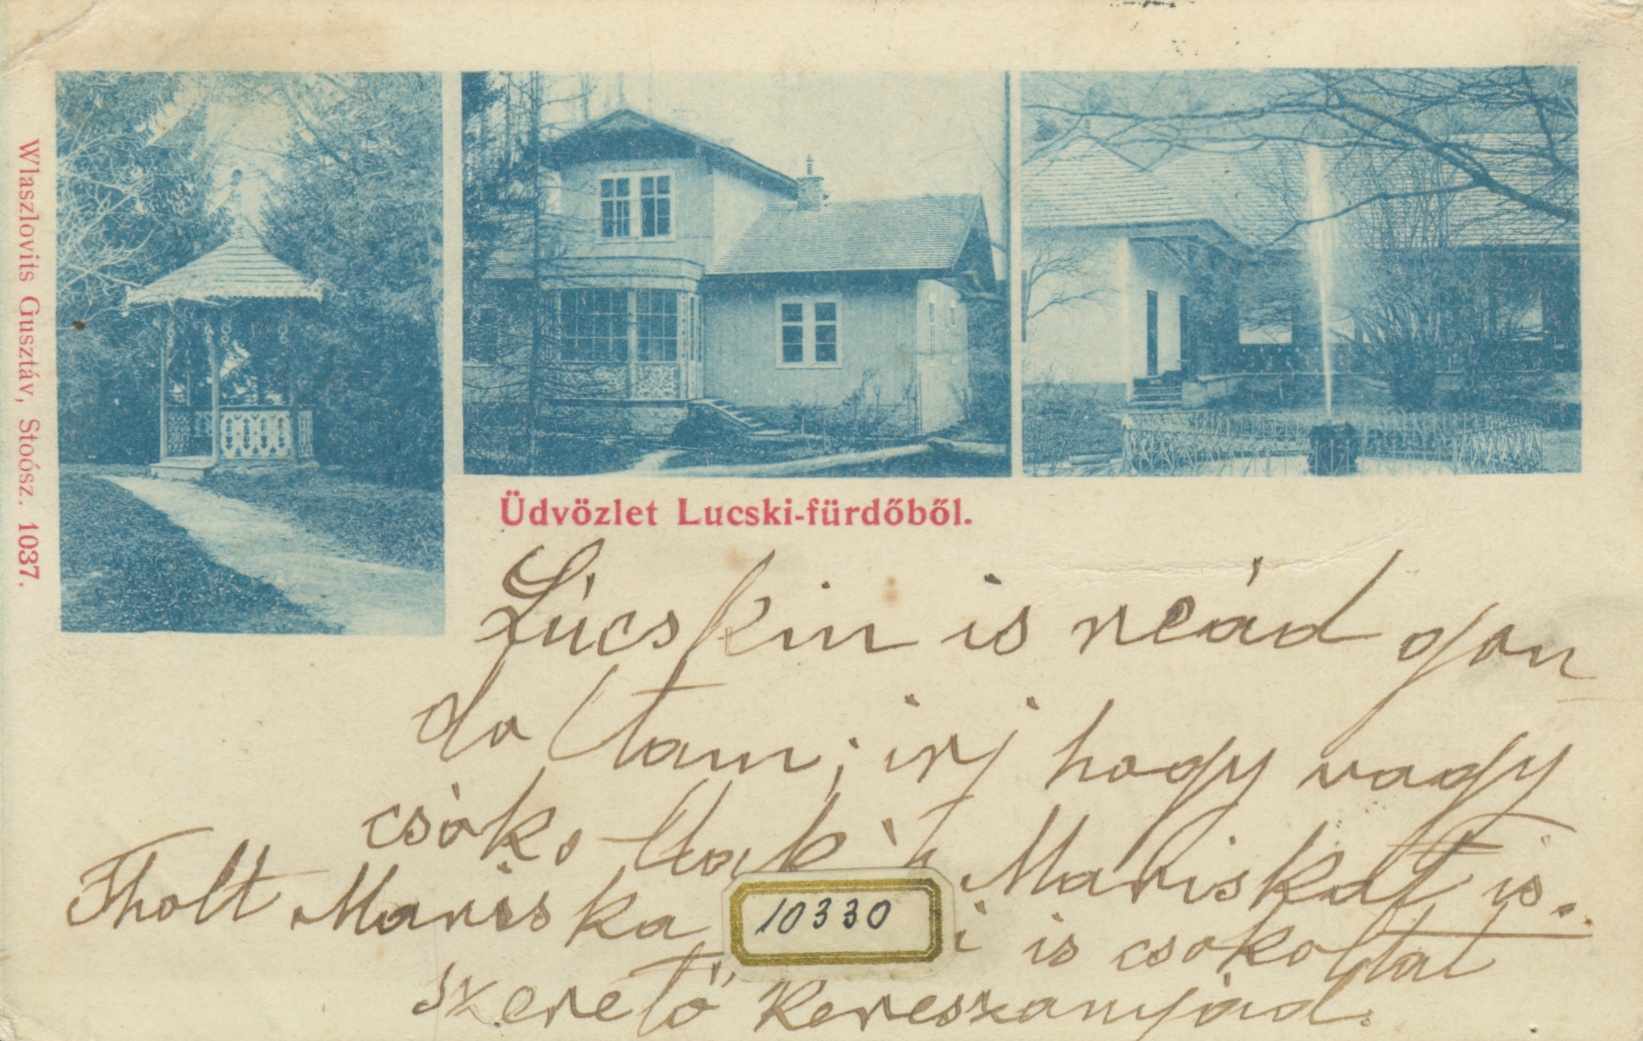 Wlaszlovits Gusztáv, Stoósz. 1037.
Üdvözlet Lucski-fürdőből.
Lúcskin is reád gon
doltam; irj hogy vagy
csókollak Mariskát is.
Tholt Mariska i is csokoltat
szerető kereszanyád.
10330